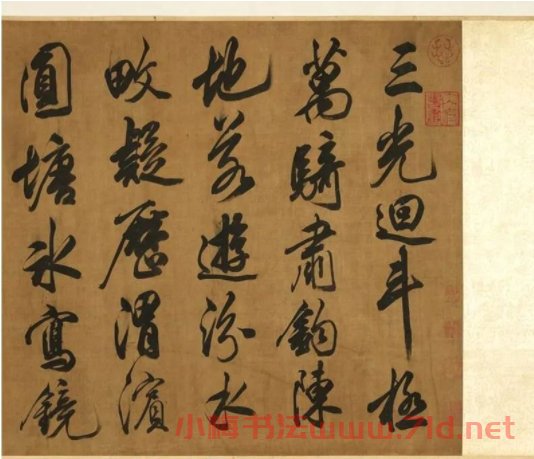 三光迴斗極
萬騎肅鉤陳
地若遊汾水
畋疑歷渭濱
圓塘冰寫鏡
小梅书法www.7ld.net